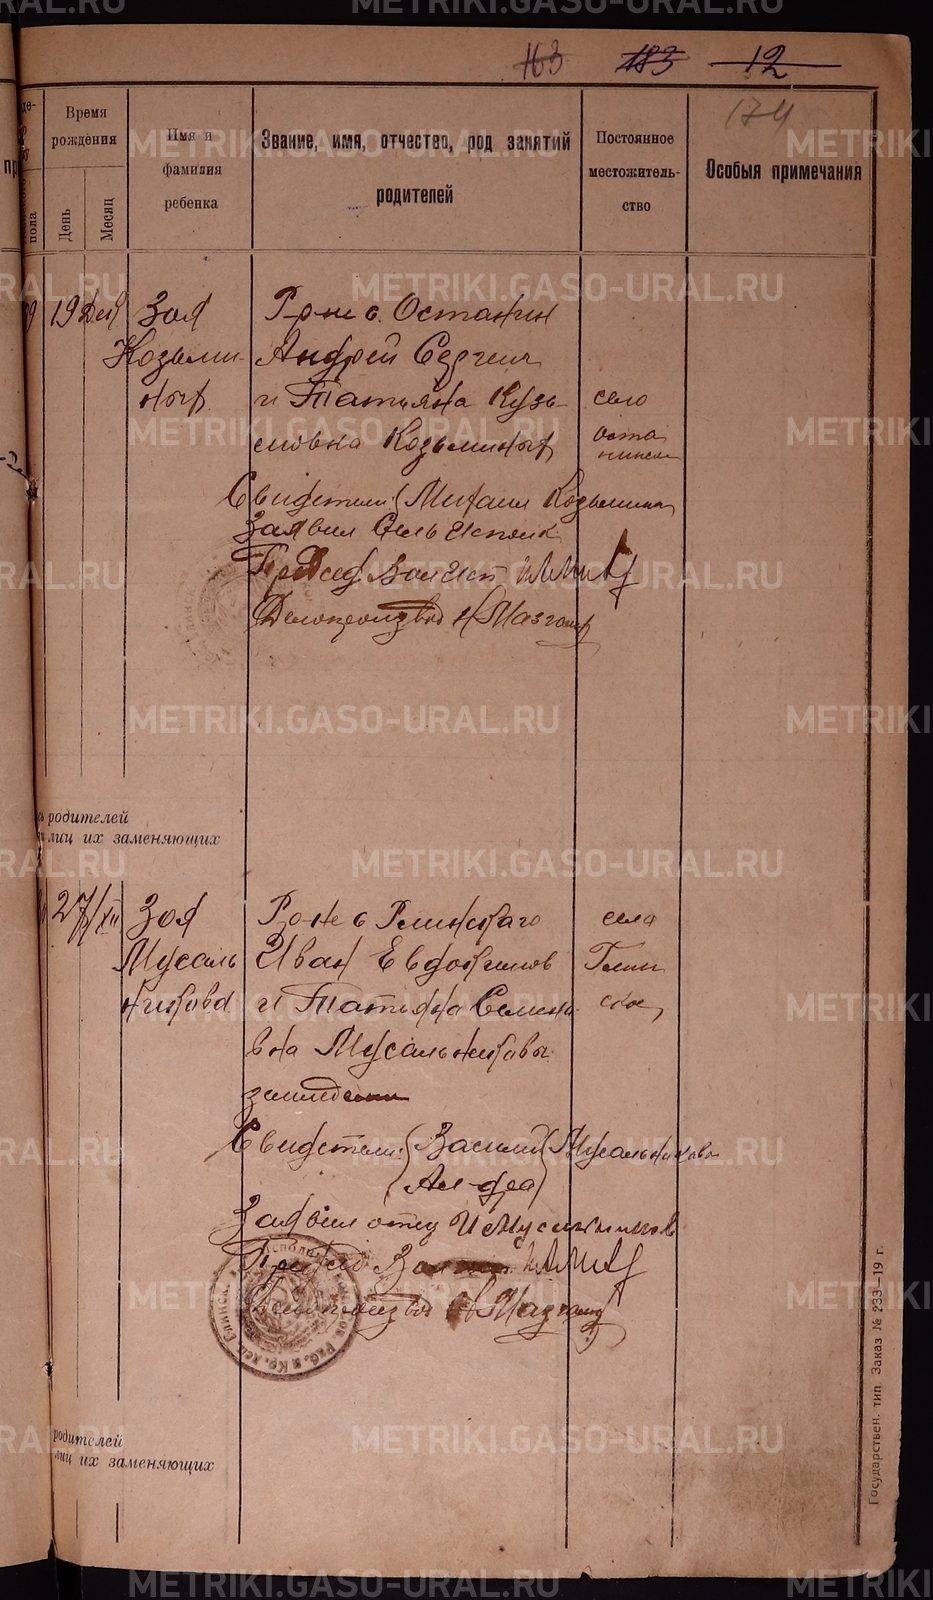 163 183 12
174
Время рождения
День
Месяц
пола
Имя и фамилия ребенка
Звание, имя, отчество, род занятий родителей
Постоянное местожительство
Особыя примечания
19 Дек Зоя
Козьми-
ных
Гр-не с. Останин
Андрей Сергеич
и Татьяна Кузь-
мовна Козьминых
село
Оста
нинск
Свидетели: Михаил Козьминых
Заявил Сельисполк
Председ. Волисп.
Делопроизвод
родителей
лиц их заменяющих
27/XII Зоя
Мусаль
никова
Гр-не с Глинскаго
Иван Евдокимов
и Татьяна Семено-
вна Мусальниковы
села
Глин
ское
Свидетели: Василий Мусальниковы
Ал-дра
Заявил отец И Мусальников
Председ. Вол
Делопроизвод
родителей
лиц их заменяющих
Государствен. тип. Заказ № 233—19 г.
METRIKI.GASO-URAL.RU